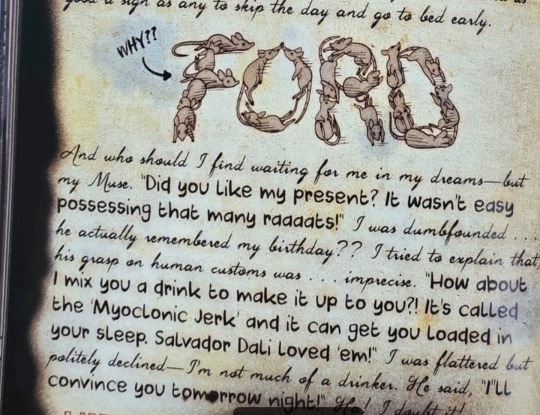 good a sign as any to skip the day and go to bed early.
WHY??
FORD
And who should I find waiting for me in my dreams—but
my Muse. "Did you like my present? It wasn't easy
possessing that many raaaats!" I was dumbfounded . . .
he actually remembered my birthday?? I tried to explain that
his grasp on human customs was . . . imprecise. "How about
I mix you a drink to make it up to you?! It's called
the 'Myoclonic Jerk' and it can get you loaded in
your sleep. Salvador Dali loved 'em!" I was flattered but
politely declined—I'm not much of a drinker. He said, "I'll
convince you tomorrow night!" Ha! I doubt it!